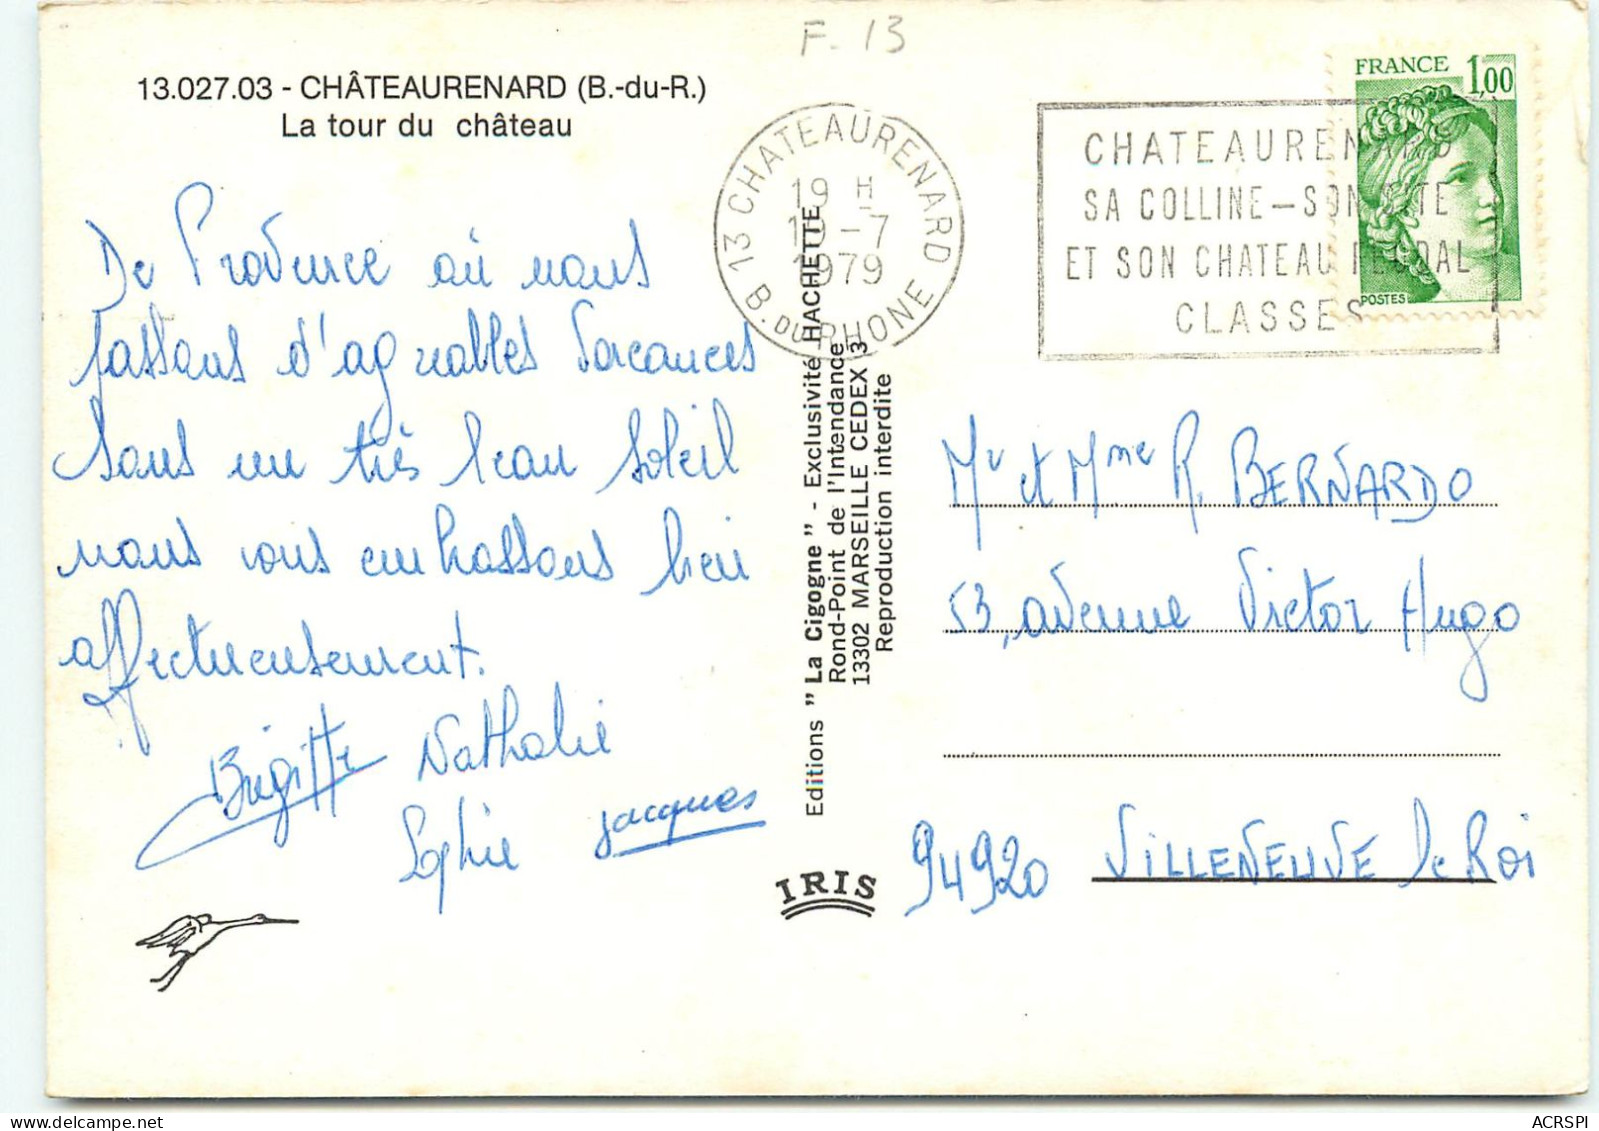 F. 13
13.027.03 - CHÂTEAURENARD (B.-du-R.)
La tour du château
De Provence où nous
passons d'agréables vacances
sous un très beau soleil
nous vous embrassons bien
affectueusement.
Brigitte Nathalie
Sophie Jacques
Editions " La Cigogne " - Exclusivité HACHETTE
Rond-Point de l'Intendance
13302 MARSEILLE CEDEX 3
Reproduction interdite
IRIS
13 CHATEAURENARD
19 H
-7
1979
B. DU RHONE
CHATEAURENARD
SA COLLINE - SON SITE
ET SON CHATEAU FEODAL
CLASSES
FRANCE 1,00
POSTES
Mr et Mme R. BERNARDO
53, avenue Victor Hugo
94920 VILLENEUVE le Roi
ACRSPI